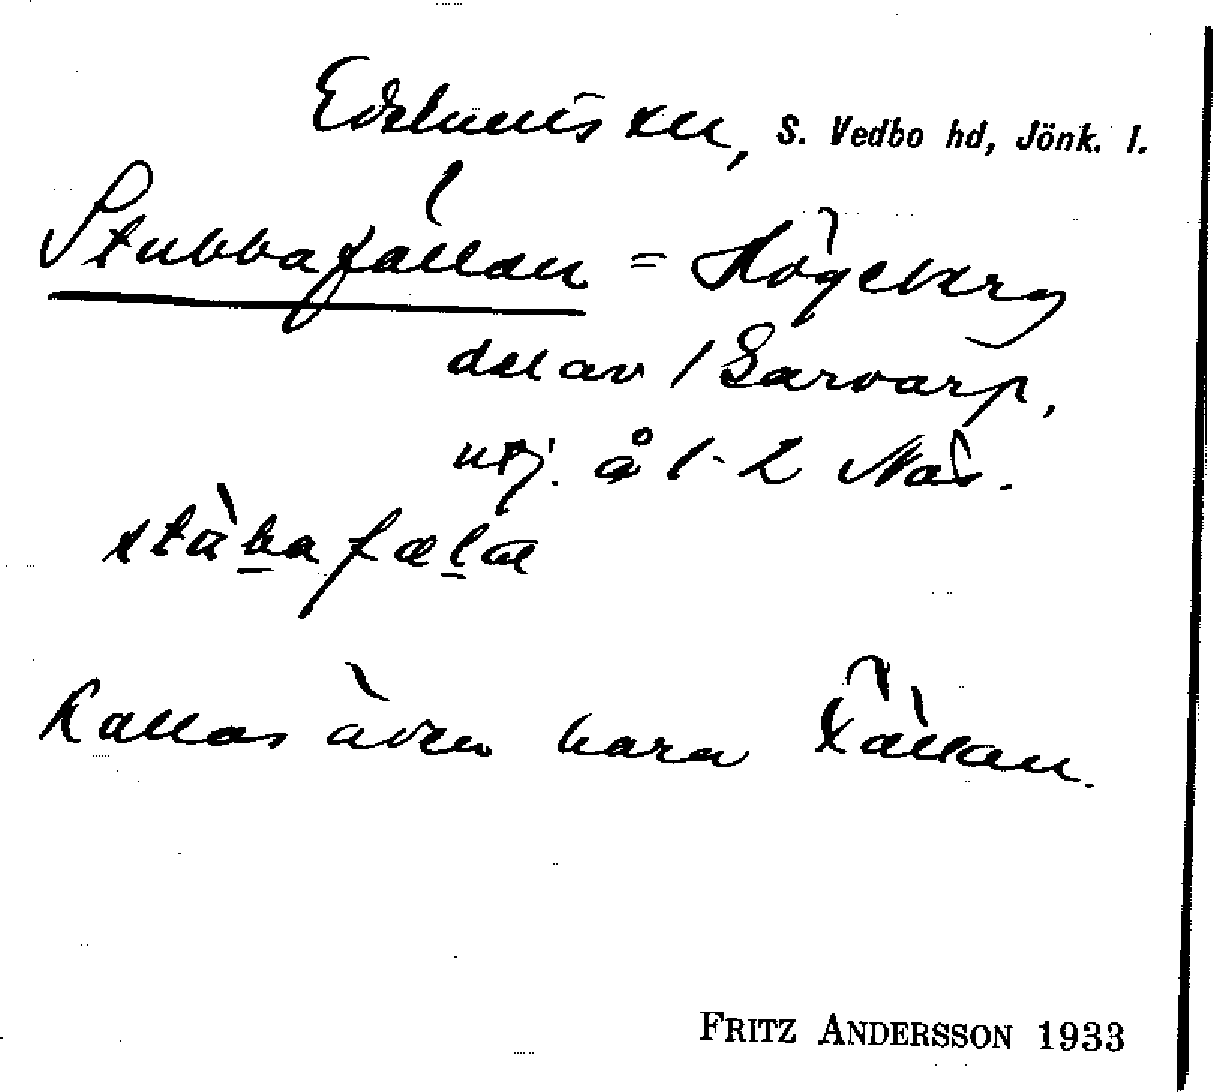 Edshults sn, S. Vedbo hd, Jönk. l.
Stubbafällan = Högeberg
del av 1 Sarvarp,
utj. å 1-2 Näs.
stùbafælæ
Kallas även bara Fällan.
FRITZ ANDERSSON 1933